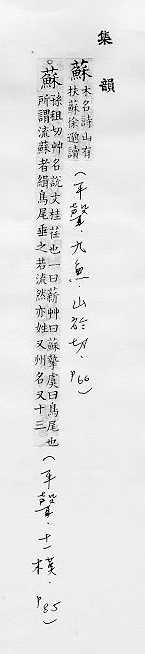 集韻
蘇木名詩山有
扶蘇徐邈讀
(平聲.九魚.山於切.P66)
蘇孫租切艸名說文桂荏也一曰薪艸曰蘇摯虞曰鳥尾也
所謂流蘇者緝鳥尾垂之若流然亦姓又州名文十三
(平聲.十一模.P85)